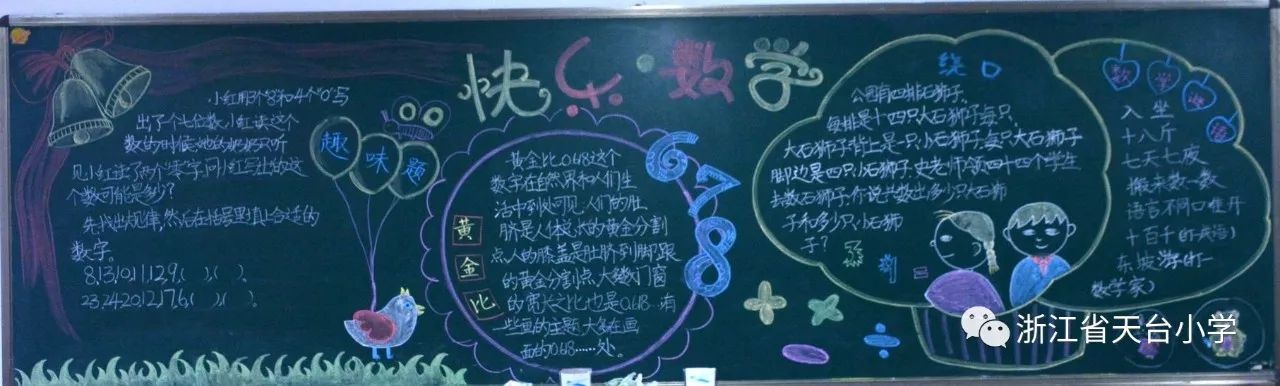 快乐·数学
小红用3个"8"和4个"0"写
出了个七位数,小红读这个
数的时候,她的妈妈只听
见小红读了两个零字,问小红写出的这
个数可能是多少?
先找出规律,然后在括号里填上合适的
数字。
8,13,10,11,12,9,( ),( )。
23,24,20,12,17,6,( ),( )。
趣味题
黄金比
黄金比0.618这个
数字在自然界和人们生
活中到处可见,人们的肚
脐是人体总长的黄金分割
点,人的膝盖是肚脐到脚跟
的黄金分割点,大多数门窗
的宽长之比也是0.618…有
些画的主题大多在画
面的0.618……处。
6
7
8
绕口
公园有四排石狮子,
每排是十四只大石狮子,每只
大石狮子背上是一只小石狮子,每只大石狮子
脚边是四只小石狮子,史老师领四十四个学生
去数石狮子,你说共数出多少只大石狮
子和多少只小石狮
子?
数学谜语
入坐
十八斤
七天七夜
搬来数一数
语言不同口难开
十百千(打成语)
东坡游(打一
数学家)
浙江省天台小学